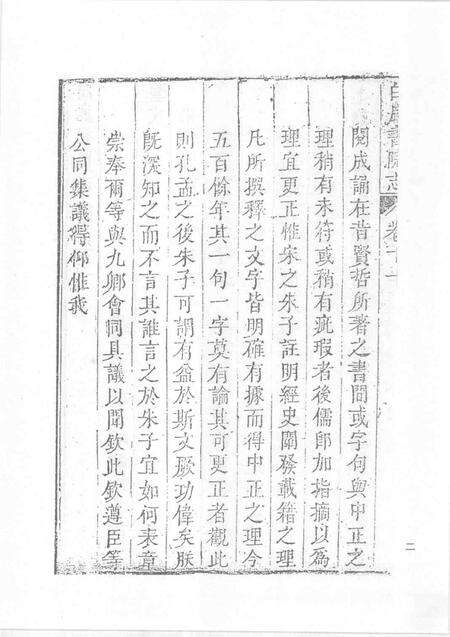 白鹿書院志 卷十一
閱成誦在昔賢哲所著之書間或字句與中正之
理稍有未符或稍有疵瑕者後儒即加指摘以為
理宜更正惟宋之朱子註明經史闡發載籍之理
凡所撰釋之文字皆明確有據而得中正之理今
五百餘年其一句一字莫有論其可更正者觀此
則孔孟之後朱子可謂有益於斯文厥功偉矣朕
既深知之而不言其誰言之於朱子宜如何表章
崇奉爾等與九卿會同具議以聞欽此欽遵臣等
公同集議得仰惟我
二